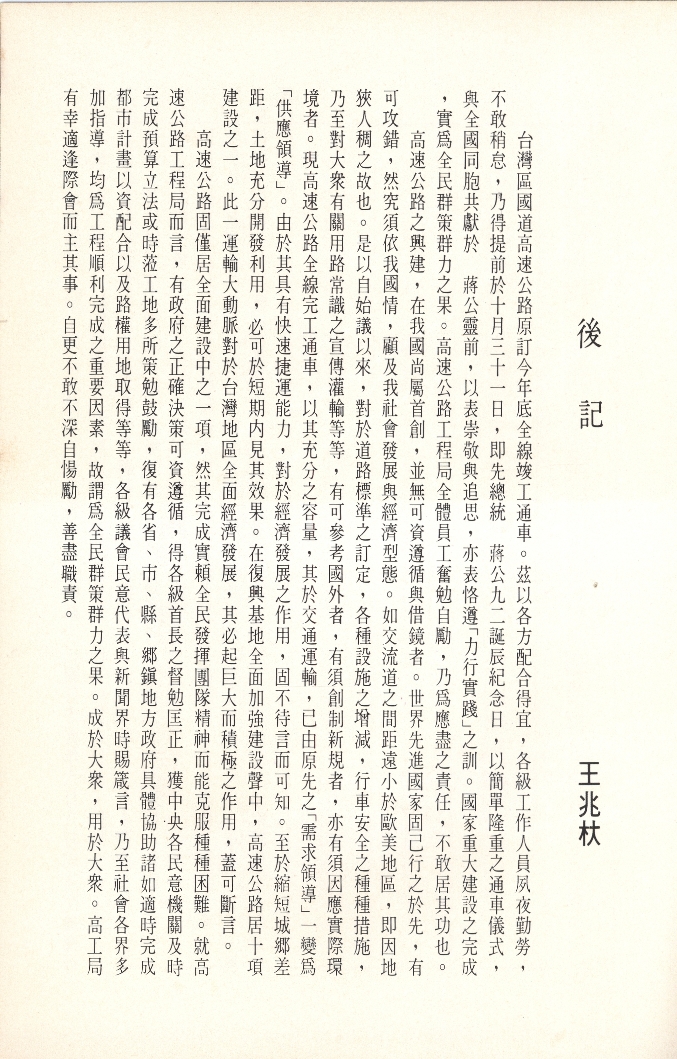 後記
王兆杕
台灣區國道高速公路原訂今年底全線竣工通車。茲以各方配合得宜，各級工作人員夙夜勤勞，
不敢稍怠，乃得提前於十月三十一日，即先總統　蔣公九二誕辰紀念日，以簡單隆重之通車儀式，
與全國同胞共獻於　蔣公靈前，以表崇敬與追思，亦表恪遵「力行實踐」之訓。國家重大建設之完成
，實爲全民群策群力之果。高速公路工程局全體員工奮勉自勵，乃爲應盡之責任，不敢居其功也。
高速公路之興建，在我國尚屬首創，並無可資遵循與借鏡者。世界先進國家固已行之於先，有
可攻錯，然究須依我國情，顧及我社會發展與經濟型態。如交流道之間距遠小於歐美地區，即因地
狹人稠之故也。是以自始議以來，對於道路標準之訂定，各種設施之增減，行車安全之種種措施，
乃至對大衆有關用路常識之宣傳灌輸等等，有可參考國外者，有須創制新規者，亦有須因應實際環
境者。現高速公路全線完工通車，以其充分之容量，其於交通運輸，已由原先之「需求領導」一變爲
「供應領導」。由於其具有快速捷運能力，對於經濟發展之作用，固不待言而可知。至於縮短城鄉差
距，土地充分開發利用，必可於短期內見其效果。在復興基地全面加強建設聲中，高速公路居十項
建設之一。此一運輸大動脈對於台灣地區全面經濟發展，其必起巨大而積極之作用，蓋可斷言。
高速公路固僅居全面建設中之一項，然其完成實賴全民發揮團隊精神而能克服種種困難。就高
速公路工程局而言，有政府之正確決策可資遵循，得各級首長之督勉匡正，獲中央各民意機關及時
完成預算立法或時蒞工地多所策勉鼓勵，復有各省、市、縣、鄉鎭地方政府具體協助諸如適時完成
都市計畫以資配合以及路權用地取得等等，各級議會民意代表與新聞界時賜箴言，乃至社會各界多
加指導，均爲工程順利完成之重要因素，故謂爲全民群策群力之果。成於大衆，用於大衆。高工局
有幸適逢際會而主其事。自更不敢不深自惕勵，善盡職責。